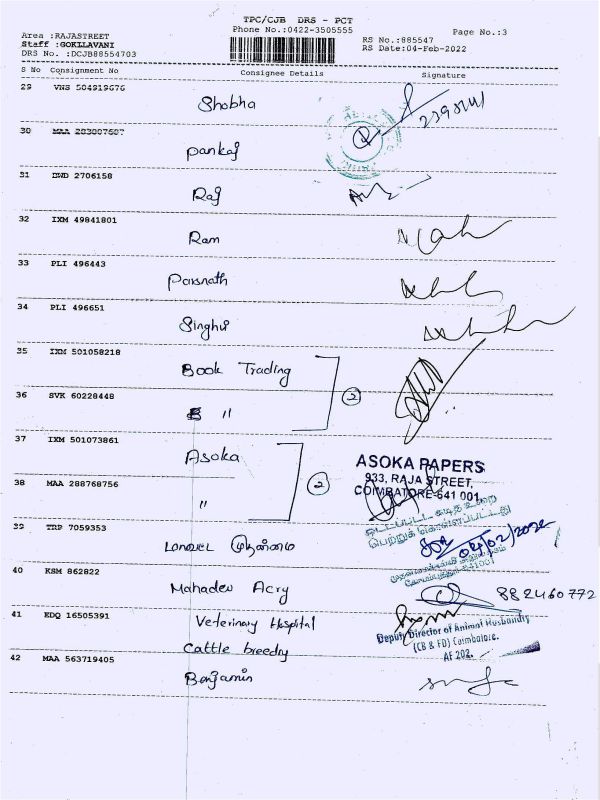 TPC/CJB DRS - PCT
Phone No.:0422-3505555
Page No.:3
Area :RAJASTREET
Staff :GOKLLAVANI
DRS No. :DCJB88554703
RS No.:885547
RS Date:04-Feb-2022
S No Consignment No Consignee Details Signature
29 VNS 504919676 Shobha
30 MAA 283807687 Pankaj
31 DWD 2706158 Raj
32 IXM 49841801 Ram
33 PLI 496443 Parsnath
34 PLI 496651 Singhvi
35 IXM 501058218 Book Trading
36 SVK 60228448 "
2
37 IXM 501073861 Asoka
38 MAA 288768756 "
2
ASOKA PAPERS
933, RAJA STREET,
COIMBATORE-641 001
39 TRP 7059353
04/02/2022
40 KSM 862822 Mahadev Acry
882460772
41 KDQ 16505391 Veterinary Hospital
Cattle breedry
Deputy Director of Animal Husbandry
(CB & FD) Coimbatore.
42 MAA 563719405 Benjamin